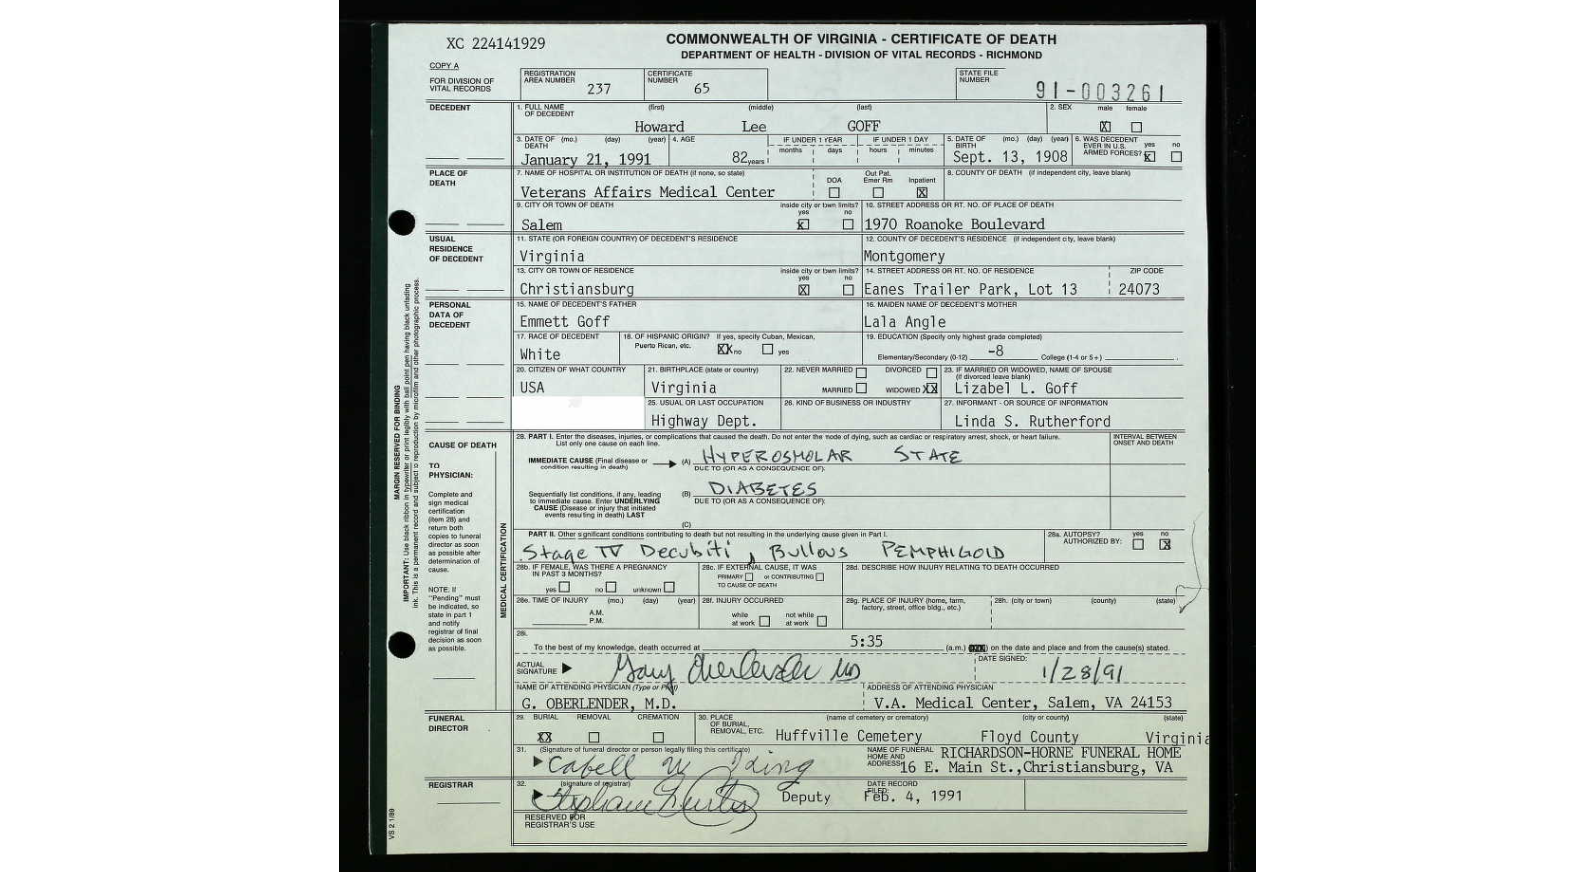 XC 224141929
COMMONWEALTH OF VIRGINIA - CERTIFICATE OF DEATH
DEPARTMENT OF HEALTH - DIVISION OF VITAL RECORDS - RICHMOND
COPY A
FOR DIVISION OF VITAL RECORDS
REGISTRATION AREA NUMBER 237
CERTIFICATE NUMBER 65
STATE FILE NUMBER 91-003261
DECEDENT
1. FULL NAME OF DECEDENT (first) (middle) (last)
Howard Lee GOFF
2. SEX male female
X
3. DATE OF DEATH (mo.) (day) (year)
January 21, 1991
4. AGE 82 years
IF UNDER 1 YEAR months days
IF UNDER 1 DAY hours minutes
5. DATE OF BIRTH (mo.) (day) (year)
Sept. 13, 1908
6. WAS DECEDENT EVER IN U.S. ARMED FORCES? yes no
X
PLACE OF DEATH
7. NAME OF HOSPITAL OR INSTITUTION OF DEATH (if none, so state)
Veterans Affairs Medical Center
DOA Out Pat. Emer Rm Inpatient
X
8. COUNTY OF DEATH (if independent city, leave blank)
9. CITY OR TOWN OF DEATH
Salem
inside city or town limits? yes no
X
10. STREET ADDRESS OR RT. NO. OF PLACE OF DEATH
1970 Roanoke Boulevard
USUAL RESIDENCE OF DECEDENT
11. STATE (OR FOREIGN COUNTRY) OF DECEDENT'S RESIDENCE
Virginia
12. COUNTY OF DECEDENT'S RESIDENCE (if independent city, leave blank)
Montgomery
13. CITY OR TOWN OF RESIDENCE
Christiansburg
inside city or town limits? yes no
X
14. STREET ADDRESS OR RT. NO. OF RESIDENCE
Eanes Trailer Park, Lot 13
ZIP CODE
24073
PERSONAL DATA OF DECEDENT
15. NAME OF DECEDENT'S FATHER
Emmett Goff
16. MAIDEN NAME OF DECEDENT'S MOTHER
Lala Angle
17. RACE OF DECEDENT
White
18. OF HISPANIC ORIGIN? If yes, specify Cuban, Mexican, Puerto Rican, etc.
XX no yes
19. EDUCATION (Specify only highest grade completed)
Elementary/Secondary (0-12) -8 College (1-4 or 5+)
20. CITIZEN OF WHAT COUNTRY
USA
21. BIRTHPLACE (state or country)
Virginia
22. NEVER MARRIED DIVORCED
MARRIED WIDOWED XX
23. IF MARRIED OR WIDOWED, NAME OF SPOUSE (if divorced leave blank)
Lizabel L. Goff
25. USUAL OR LAST OCCUPATION
Highway Dept.
26. KIND OF BUSINESS OR INDUSTRY
27. INFORMANT - OR SOURCE OF INFORMATION
Linda S. Rutherford
CAUSE OF DEATH
TO PHYSICIAN:
Complete and sign medical certification (item 28) and return both copies to funeral director as soon as possible after determination of cause.
NOTE: If "Pending" must be indicated, so state in part 1 and notify registrar of final decision as soon as possible.
MEDICAL CERTIFICATION
28. PART I. Enter the diseases, injuries, or complications that caused the death. Do not enter the mode of dying, such as cardiac or respiratory arrest, shock, or heart failure.
List only one cause on each line.
INTERVAL BETWEEN ONSET AND DEATH
IMMEDIATE CAUSE (Final disease or condition resulting in death) (A) HYPEROSMOLAR STATE
DUE TO (OR AS A CONSEQUENCE OF):
Sequentially list conditions, if any, leading to immediate cause. Enter UNDERLYING CAUSE (Disease or injury that initiated events resulting in death) LAST
(B) DIABETES
DUE TO (OR AS A CONSEQUENCE OF):
(C)
PART II. Other significant conditions contributing to death but not resulting in the underlying cause given in Part I.
Stage IV Decubiti, Bullous PEMPHIGOID
28a. AUTOPSY? AUTHORIZED BY: yes no
X
28b. IF FEMALE, WAS THERE A PREGNANCY IN PAST 3 MONTHS?
yes no unknown
28c. IF EXTERNAL CAUSE, IT WAS
PRIMARY or CONTRIBUTING
TO CAUSE OF DEATH
28d. DESCRIBE HOW INJURY RELATING TO DEATH OCCURRED
28e. TIME OF INJURY (mo.) (day) (year)
A.M.
P.M.
28f. INJURY OCCURRED
while at work not while at work
28g. PLACE OF INJURY (home, farm, factory, street, office bldg., etc.)
28h. (city or town) (county) (state)
28i.
To the best of my knowledge, death occurred at 5:35 (a.m.) on the date and place and from the cause(s) stated.
ACTUAL SIGNATURE Gary Oberlender MD
DATE SIGNED: 1/28/91
NAME OF ATTENDING PHYSICIAN (Type or Print)
G. OBERLENDER, M.D.
ADDRESS OF ATTENDING PHYSICIAN
V.A. Medical Center, Salem, VA 24153
FUNERAL DIRECTOR
29. BURIAL REMOVAL CREMATION
XX
30. PLACE OF BURIAL, REMOVAL, ETC. (name of cemetery or crematory) (city or county) (state)
Huffville Cemetery Floyd County Virginia
31. (Signature of funeral director or person legally filing this certificate)
Cabell W
NAME OF FUNERAL HOME AND ADDRESS RICHARDSON-HORNE FUNERAL HOME
16 E. Main St., Christiansburg, VA
REGISTRAR
32. (signature of registrar)
Deputy
DATE RECORD FILED:
Feb. 4, 1991
RESERVED FOR REGISTRAR'S USE
MARGIN RESERVED FOR BINDING
IMPORTANT: Use black ribbon in typewriter or print legibly with ball point pen having black unfading ink. This is a permanent record and subject to reproduction by microfilm and other photographic process.
VS 2 1/89